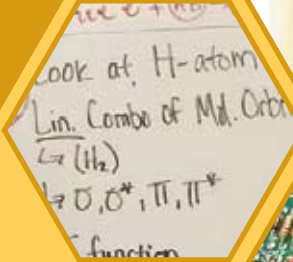 Look at H-atom
Lin. Combo of Mol. Orbi
↳ (H₂)
↳ σ, σ*, π, π*
function